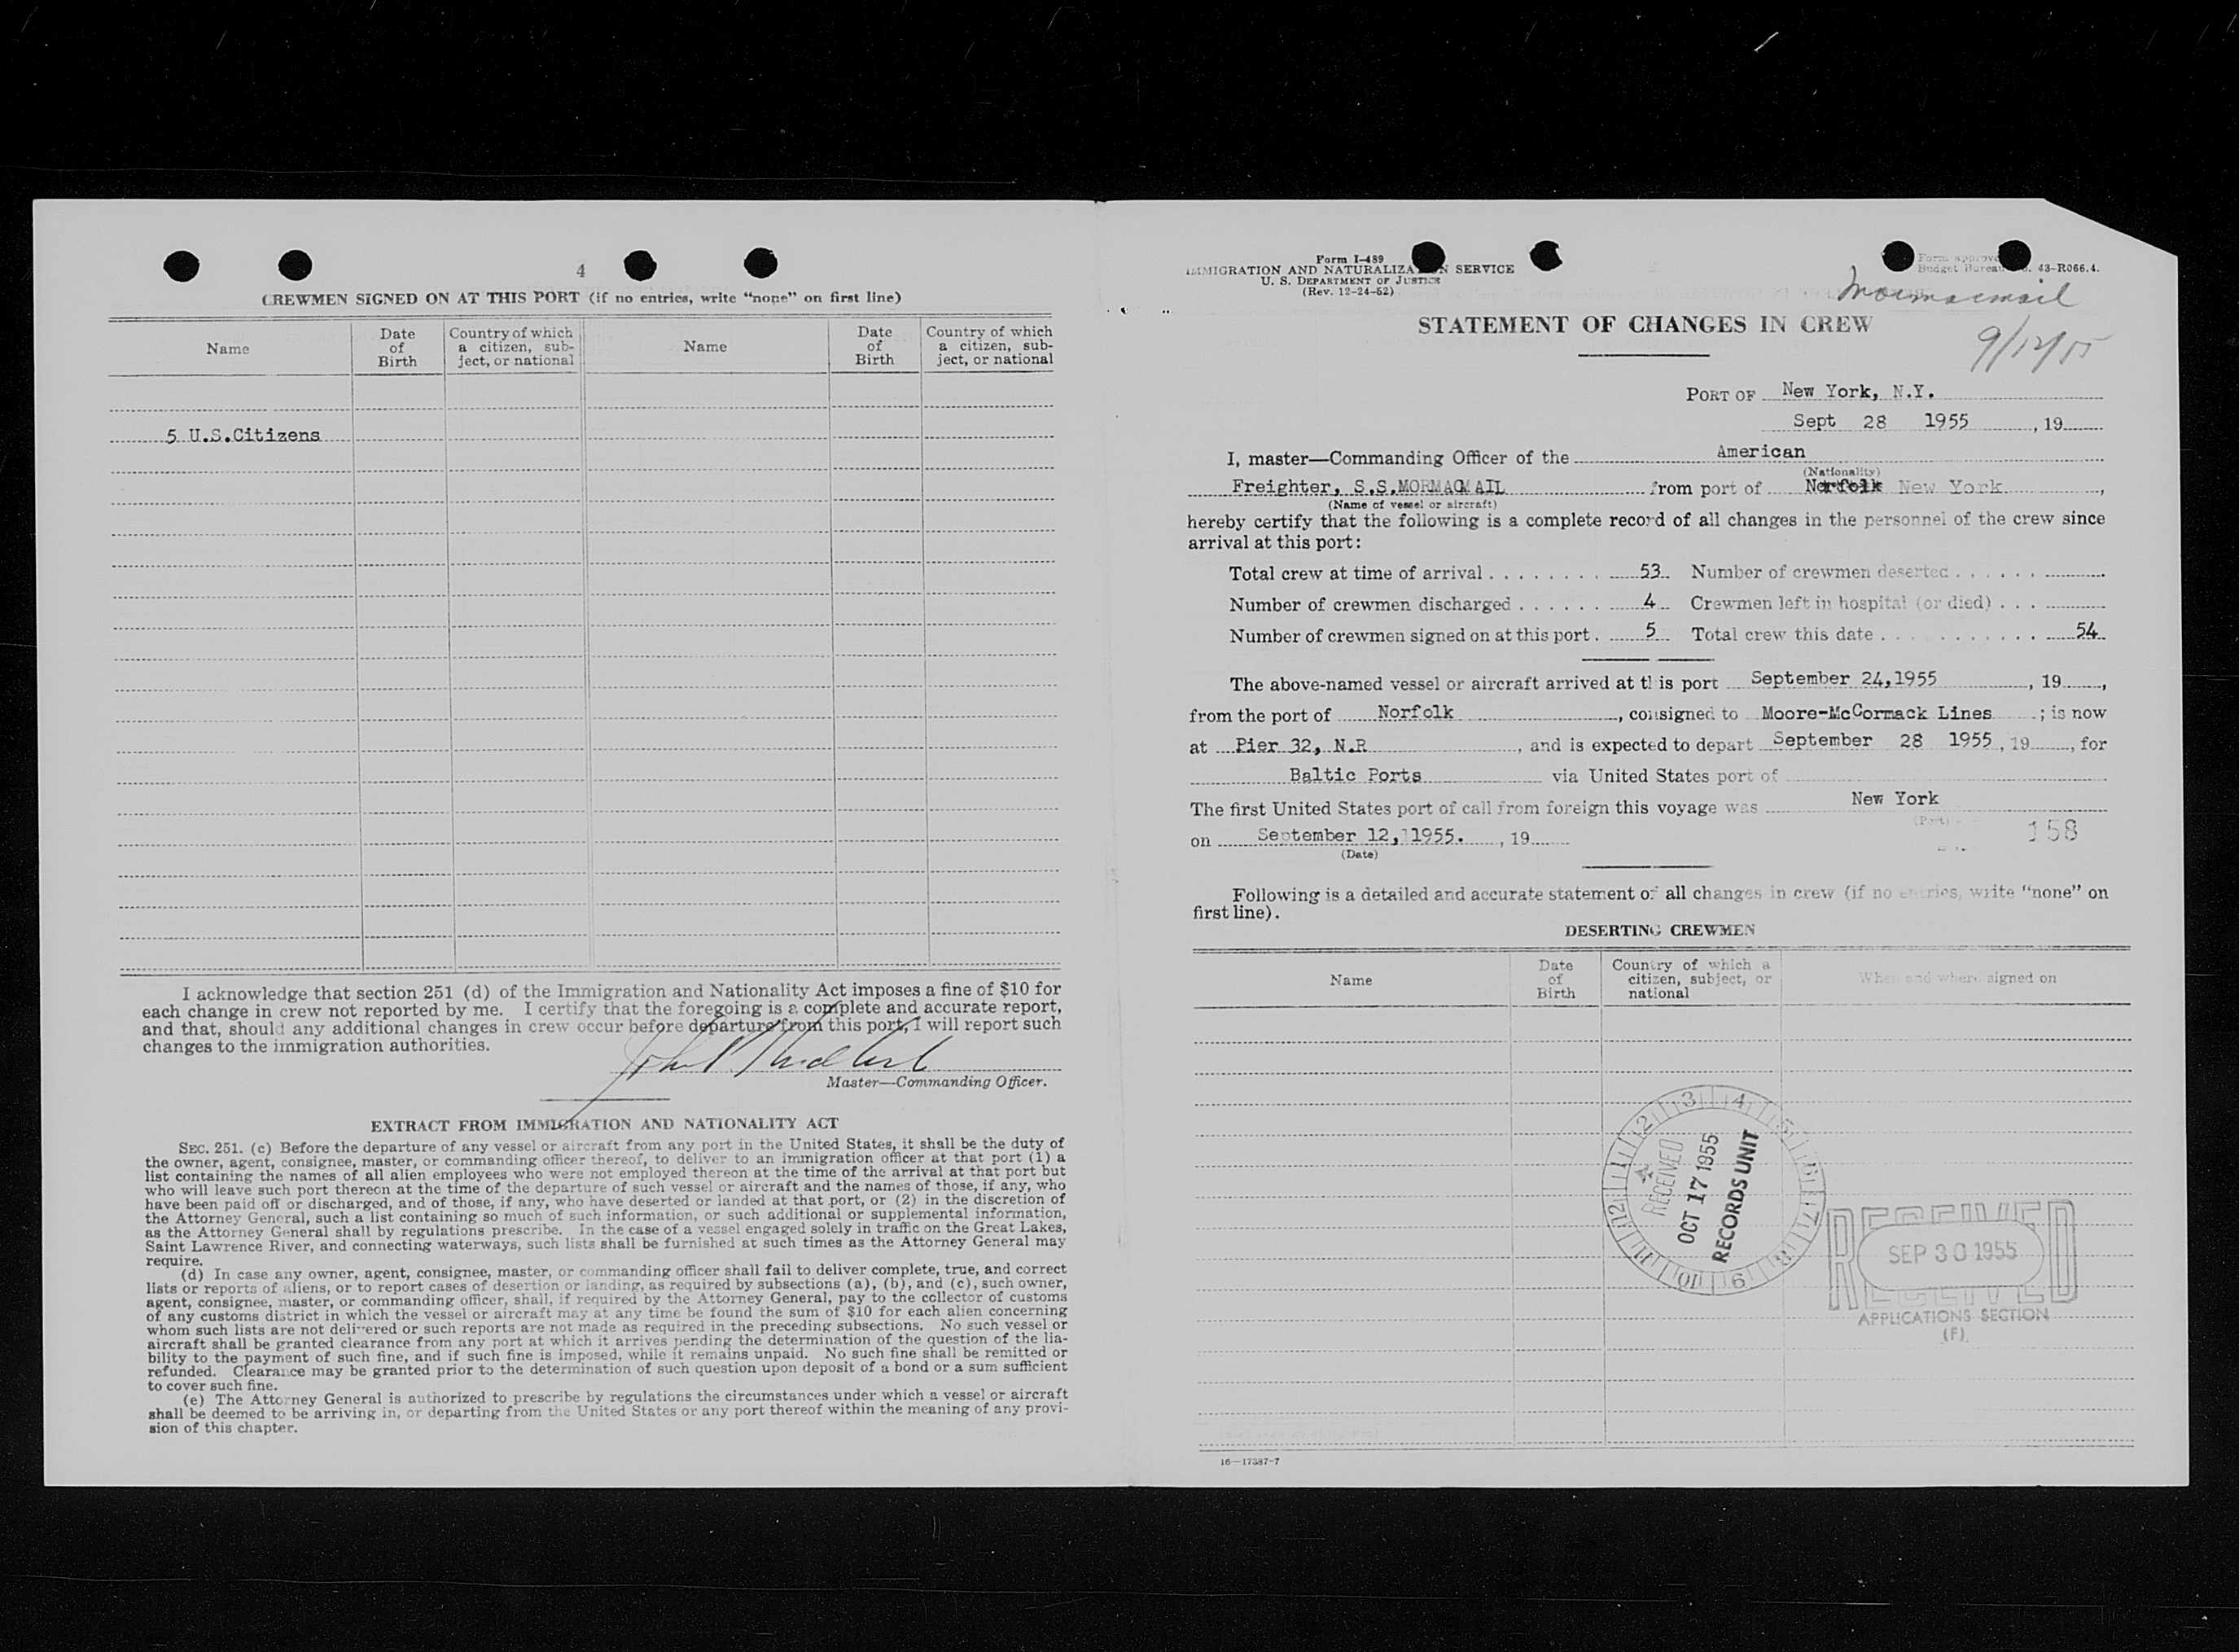 4
CREWMEN SIGNED ON AT THIS PORT (if no entries, write “none” on first line)
Name
Date of Birth
Country of which a citizen, sub-ject, or national
Name
Date of Birth
Country of which a citizen, sub-ject, or national
5 U.S.Citizens
I acknowledge that section 251 (d) of the Immigration and Nationality Act imposes a fine of $10 for
each change in crew not reported by me. I certify that the foregoing is a complete and accurate report,
and that, should any additional changes in crew occur before departure from this port, I will report such
changes to the immigration authorities.
John
Master—Commanding Officer.
EXTRACT FROM IMMIGRATION AND NATIONALITY ACT
SEC. 251. (c) Before the departure of any vessel or aircraft from any port in the United States, it shall be the duty of
the owner, agent, consignee, master, or commanding officer thereof, to deliver to an immigration officer at that port (1) a
list containing the names of all alien employees who were not employed thereon at the time of the arrival at that port but
who will leave such port thereon at the time of the departure of such vessel or aircraft and the names of those, if any, who
have been paid off or discharged, and of those, if any, who have deserted or landed at that port, or (2) in the discretion of
the Attorney General, such a list containing so much of such information, or such additional or supplemental information,
as the Attorney General shall by regulations prescribe. In the case of a vessel engaged solely in traffic on the Great Lakes,
Saint Lawrence River, and connecting waterways, such lists shall be furnished at such times as the Attorney General may
require.
(d) In case any owner, agent, consignee, master, or commanding officer shall fail to deliver complete, true, and correct
lists or reports of aliens, or to report cases of desertion or landing, as required by subsections (a), (b), and (c), such owner,
agent, consignee, master, or commanding officer, shall, if required by the Attorney General, pay to the collector of customs
of any customs district in which the vessel or aircraft may at any time be found the sum of $10 for each alien concerning
whom such lists are not delivered or such reports are not made as required in the preceding subsections. No such vessel or
aircraft shall be granted clearance from any port at which it arrives pending the determination of the question of the lia-
bility to the payment of such fine, and if such fine is imposed, while it remains unpaid. No such fine shall be remitted or
refunded. Clearance may be granted prior to the determination of such question upon deposit of a bond or a sum sufficient
to cover such fine.
(e) The Attorney General is authorized to prescribe by regulations the circumstances under which a vessel or aircraft
shall be deemed to be arriving in, or departing from the United States or any port thereof within the meaning of any provi-
sion of this chapter.
Form I-489
IMMIGRATION AND NATURALIZATION SERVICE
U. S. DEPARTMENT OF JUSTICE
(Rev. 12-24-52)
Form approved
Budget Bureau 43-R066.4.
Mormacmail
9/12/55
STATEMENT OF CHANGES IN CREW
PORT OF New York, N.Y.
Sept 28 1955, 19
I, master—Commanding Officer of the American
(Nationality)
Freighter, S.S.MORMACMAIL from port of Norfolk New York,
(Name of vessel or aircraft)
hereby certify that the following is a complete record of all changes in the personnel of the crew since
arrival at this port:
Total crew at time of arrival . . . . . . . . 53 Number of crewmen deserted . . . . . .
Number of crewmen discharged . . . . . . 4 Crewmen left in hospital (or died) . . .
Number of crewmen signed on at this port . 5 Total crew this date . . . . . . . . . . . 54
The above-named vessel or aircraft arrived at this port September 24,1955, 19,
from the port of Norfolk, consigned to Moore-McCormack Lines; is now
at Pier 32, N.R, and is expected to depart September 28 1955, 19, for
Baltic Ports via United States port of
The first United States port of call from foreign this voyage was New York
(Port)
158
on September 12, 1955., 19
(Date)
Following is a detailed and accurate statement of all changes in crew (if no entries, write “none” on
first line).
DESERTING CREWMEN
Name
Date of Birth
Country of which a citizen, subject, or national
When and where signed on
1 2 3 4 5 6 7 8 9 10 11 12
RECEIVED
OCT 17 1955
RECORDS UNIT
RECEIVED
SEP 30 1955
RECEIVED
APPLICATIONS SECTION
(F)
16—17387-7